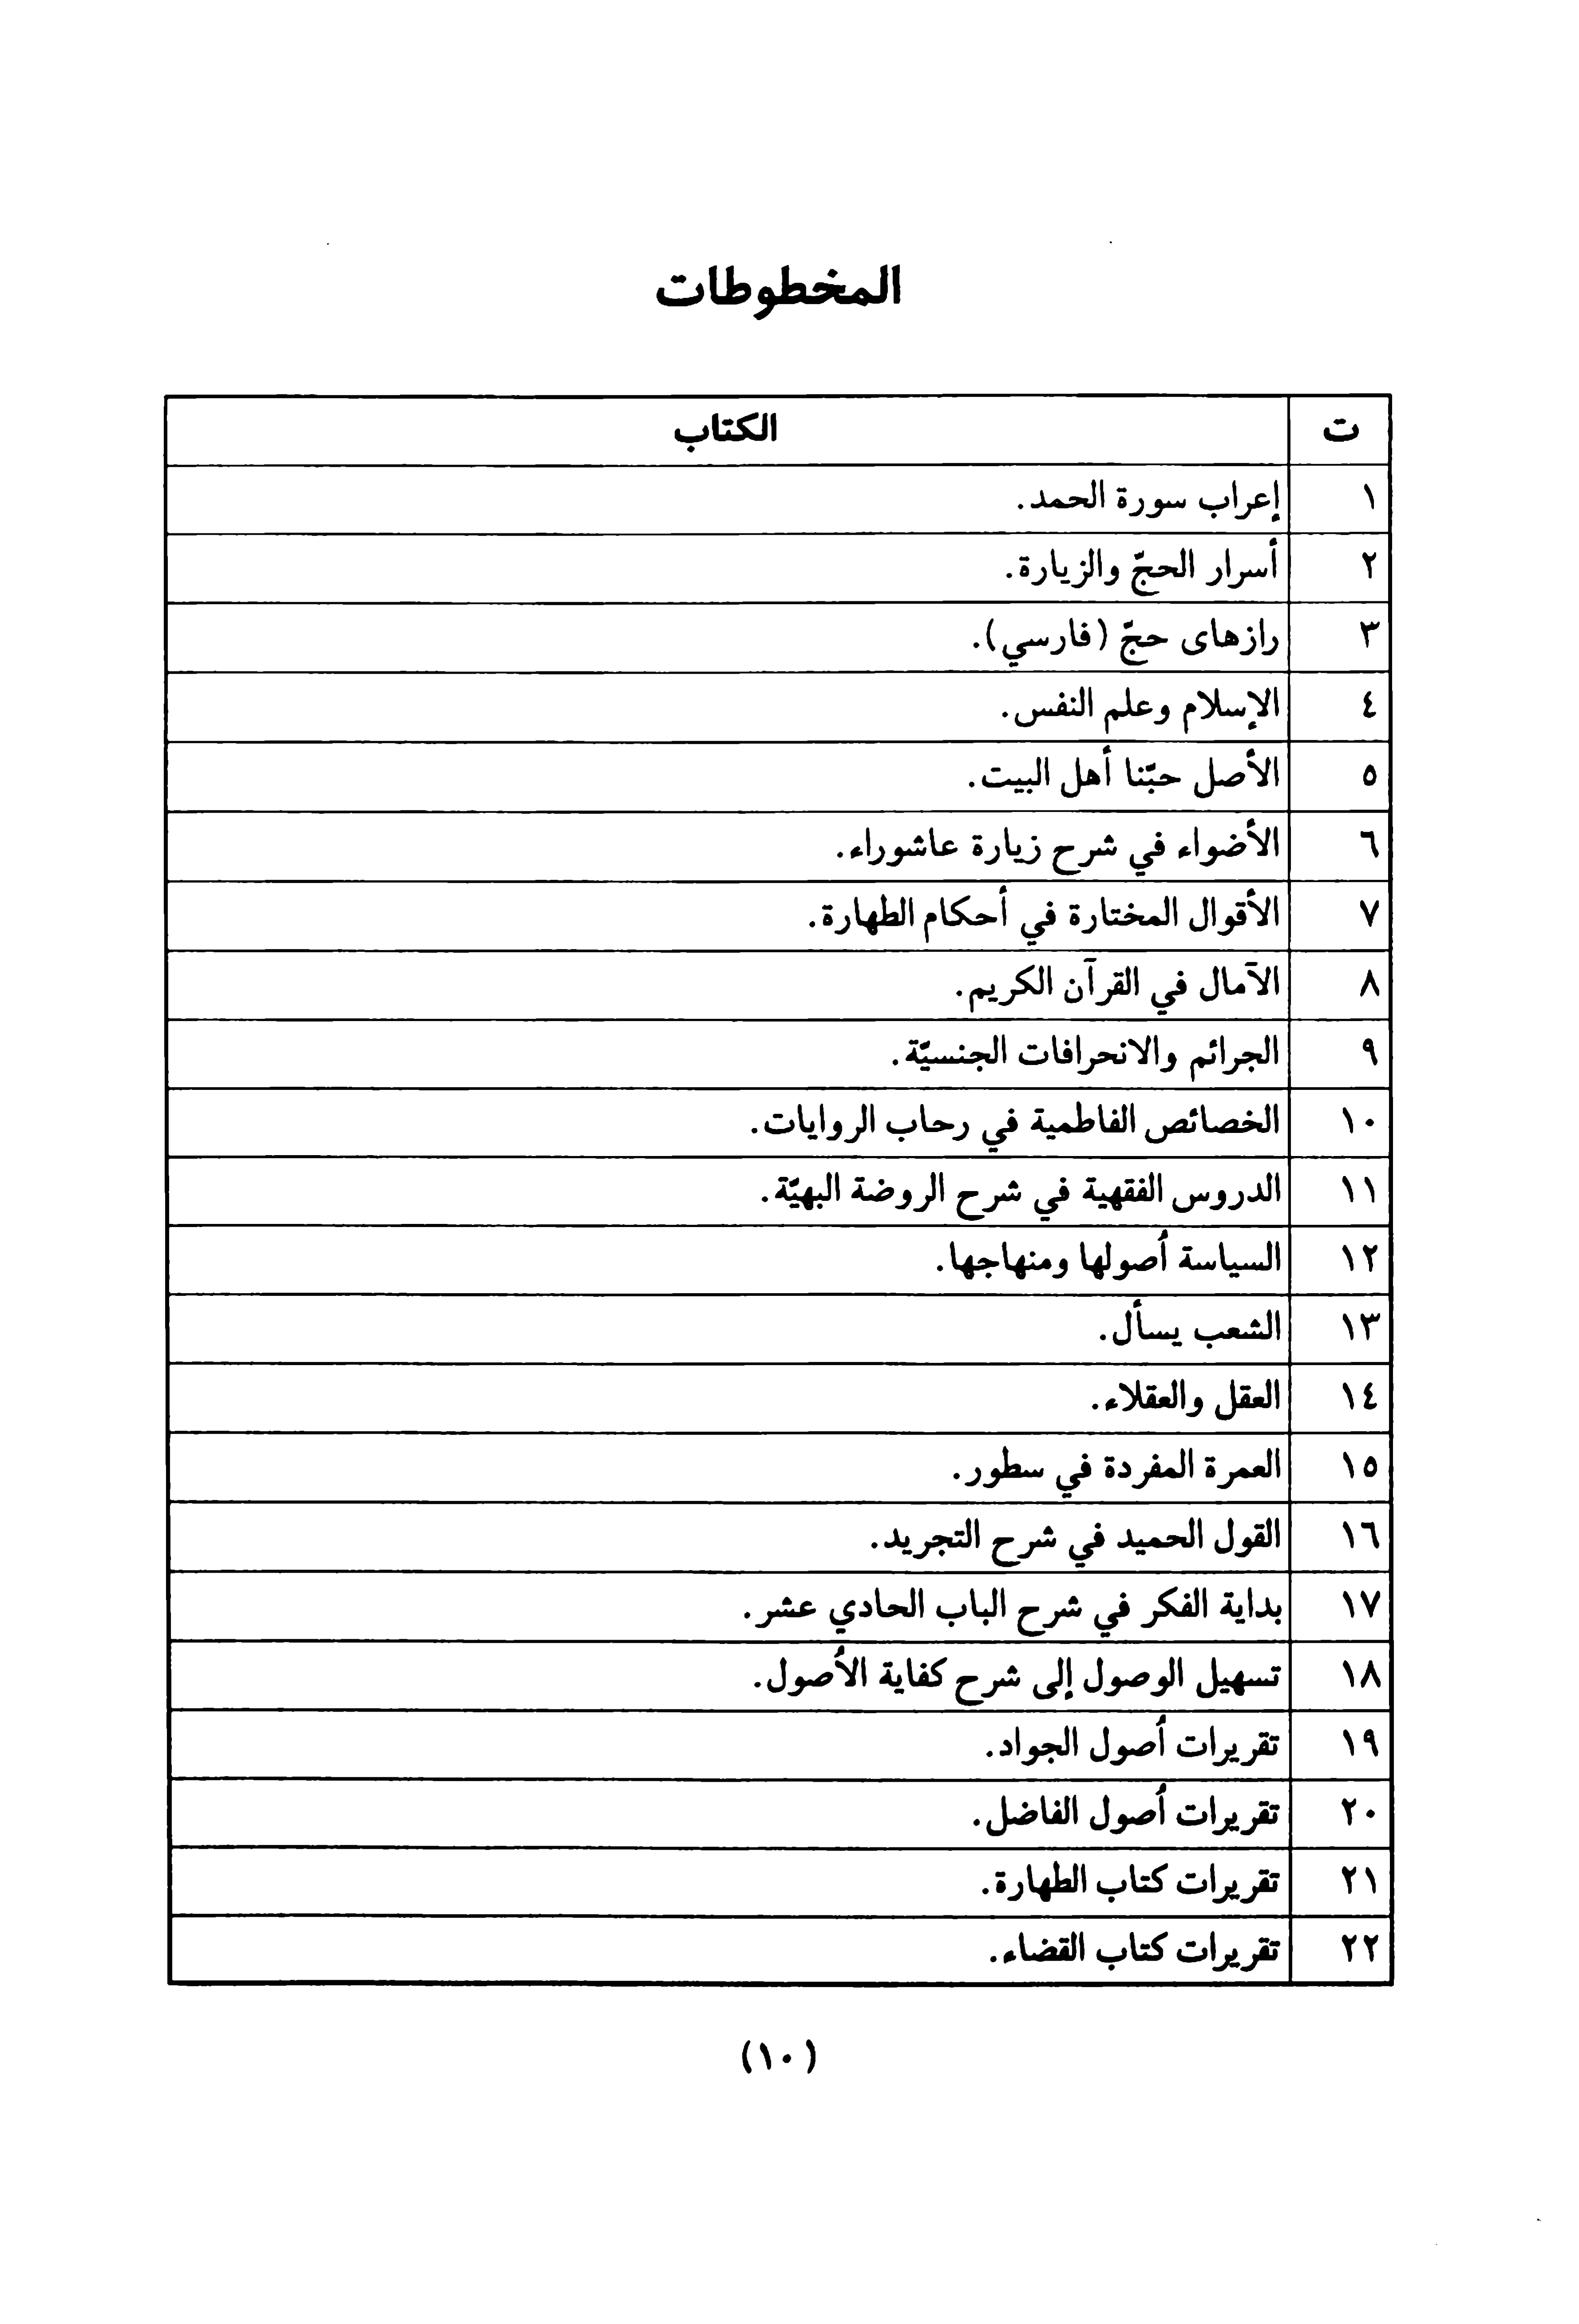 المخطوطات
ت الكتاب
١ إعراب سورة الحمد.
٢ أسرار الحجّ والزيارة.
٣ رازهاى حجّ (فارسي).
٤ الإسلام وعلم النفس.
٥ الأصل حبّنا أهل البيت.
٦ الأضواء في شرح زيارة عاشوراء.
٧ الأقوال المختارة في أحكام الطهارة.
٨ الآمال في القرآن الكريم.
٩ الجرائم والانحرافات الجنسيّة.
١٠ الخصائص الفاطمية في رحاب الروايات.
١١ الدروس الفقهية في شرح الروضة البهيّة.
١٢ السياسة أصولها ومنهاجها.
١٣ الشعب يسأل.
١٤ العقل والعقلاء.
١٥ العمرة المفردة في سطور.
١٦ القول الحميد في شرح التجريد.
١٧ بداية الفكر في شرح الباب الحادي عشر.
١٨ تسهيل الوصول إلى شرح كفاية الأُصول.
١٩ تقريرات أُصول الجواد.
٢٠ تقريرات أُصول الفاضل.
٢١ تقريرات كتاب الطهارة.
٢٢ تقريرات كتاب القضاء.
(١٠)